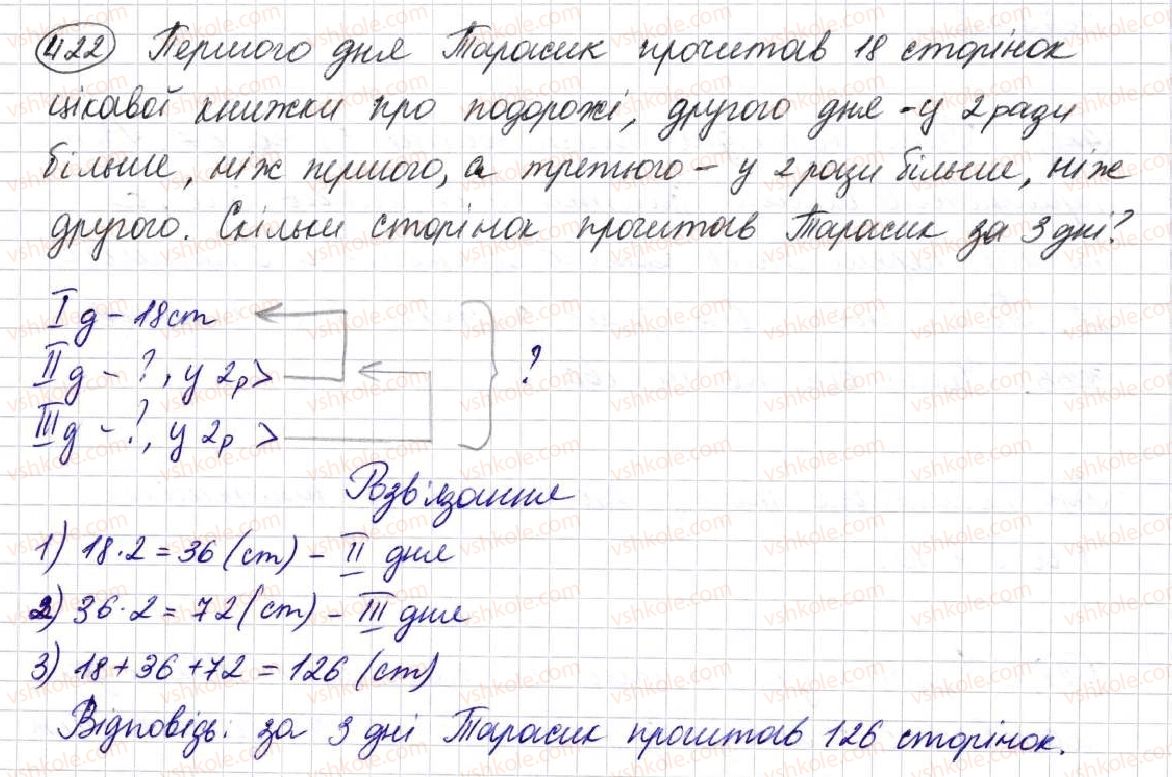 422 Першого дня Тарасик прочитав 18 сторінок
цікавої книжки про подорожі, другого дня - у 2 рази
більше, ніж першого, а третього - у 2 рази більше, ніж
другого. Скільки сторінок прочитав Тарасик за 3 дні?
I д - 18 ст
II д - ?, у 2р > ?
III д - ?, у 2р >
Розв'язання
1) 18·2=36 (ст) - II дня
2) 36·2=72 (ст) - III дня
3) 18+36+72=126 (ст)
Відповідь: за 3 дні Тарасик прочитав 126 сторінок.